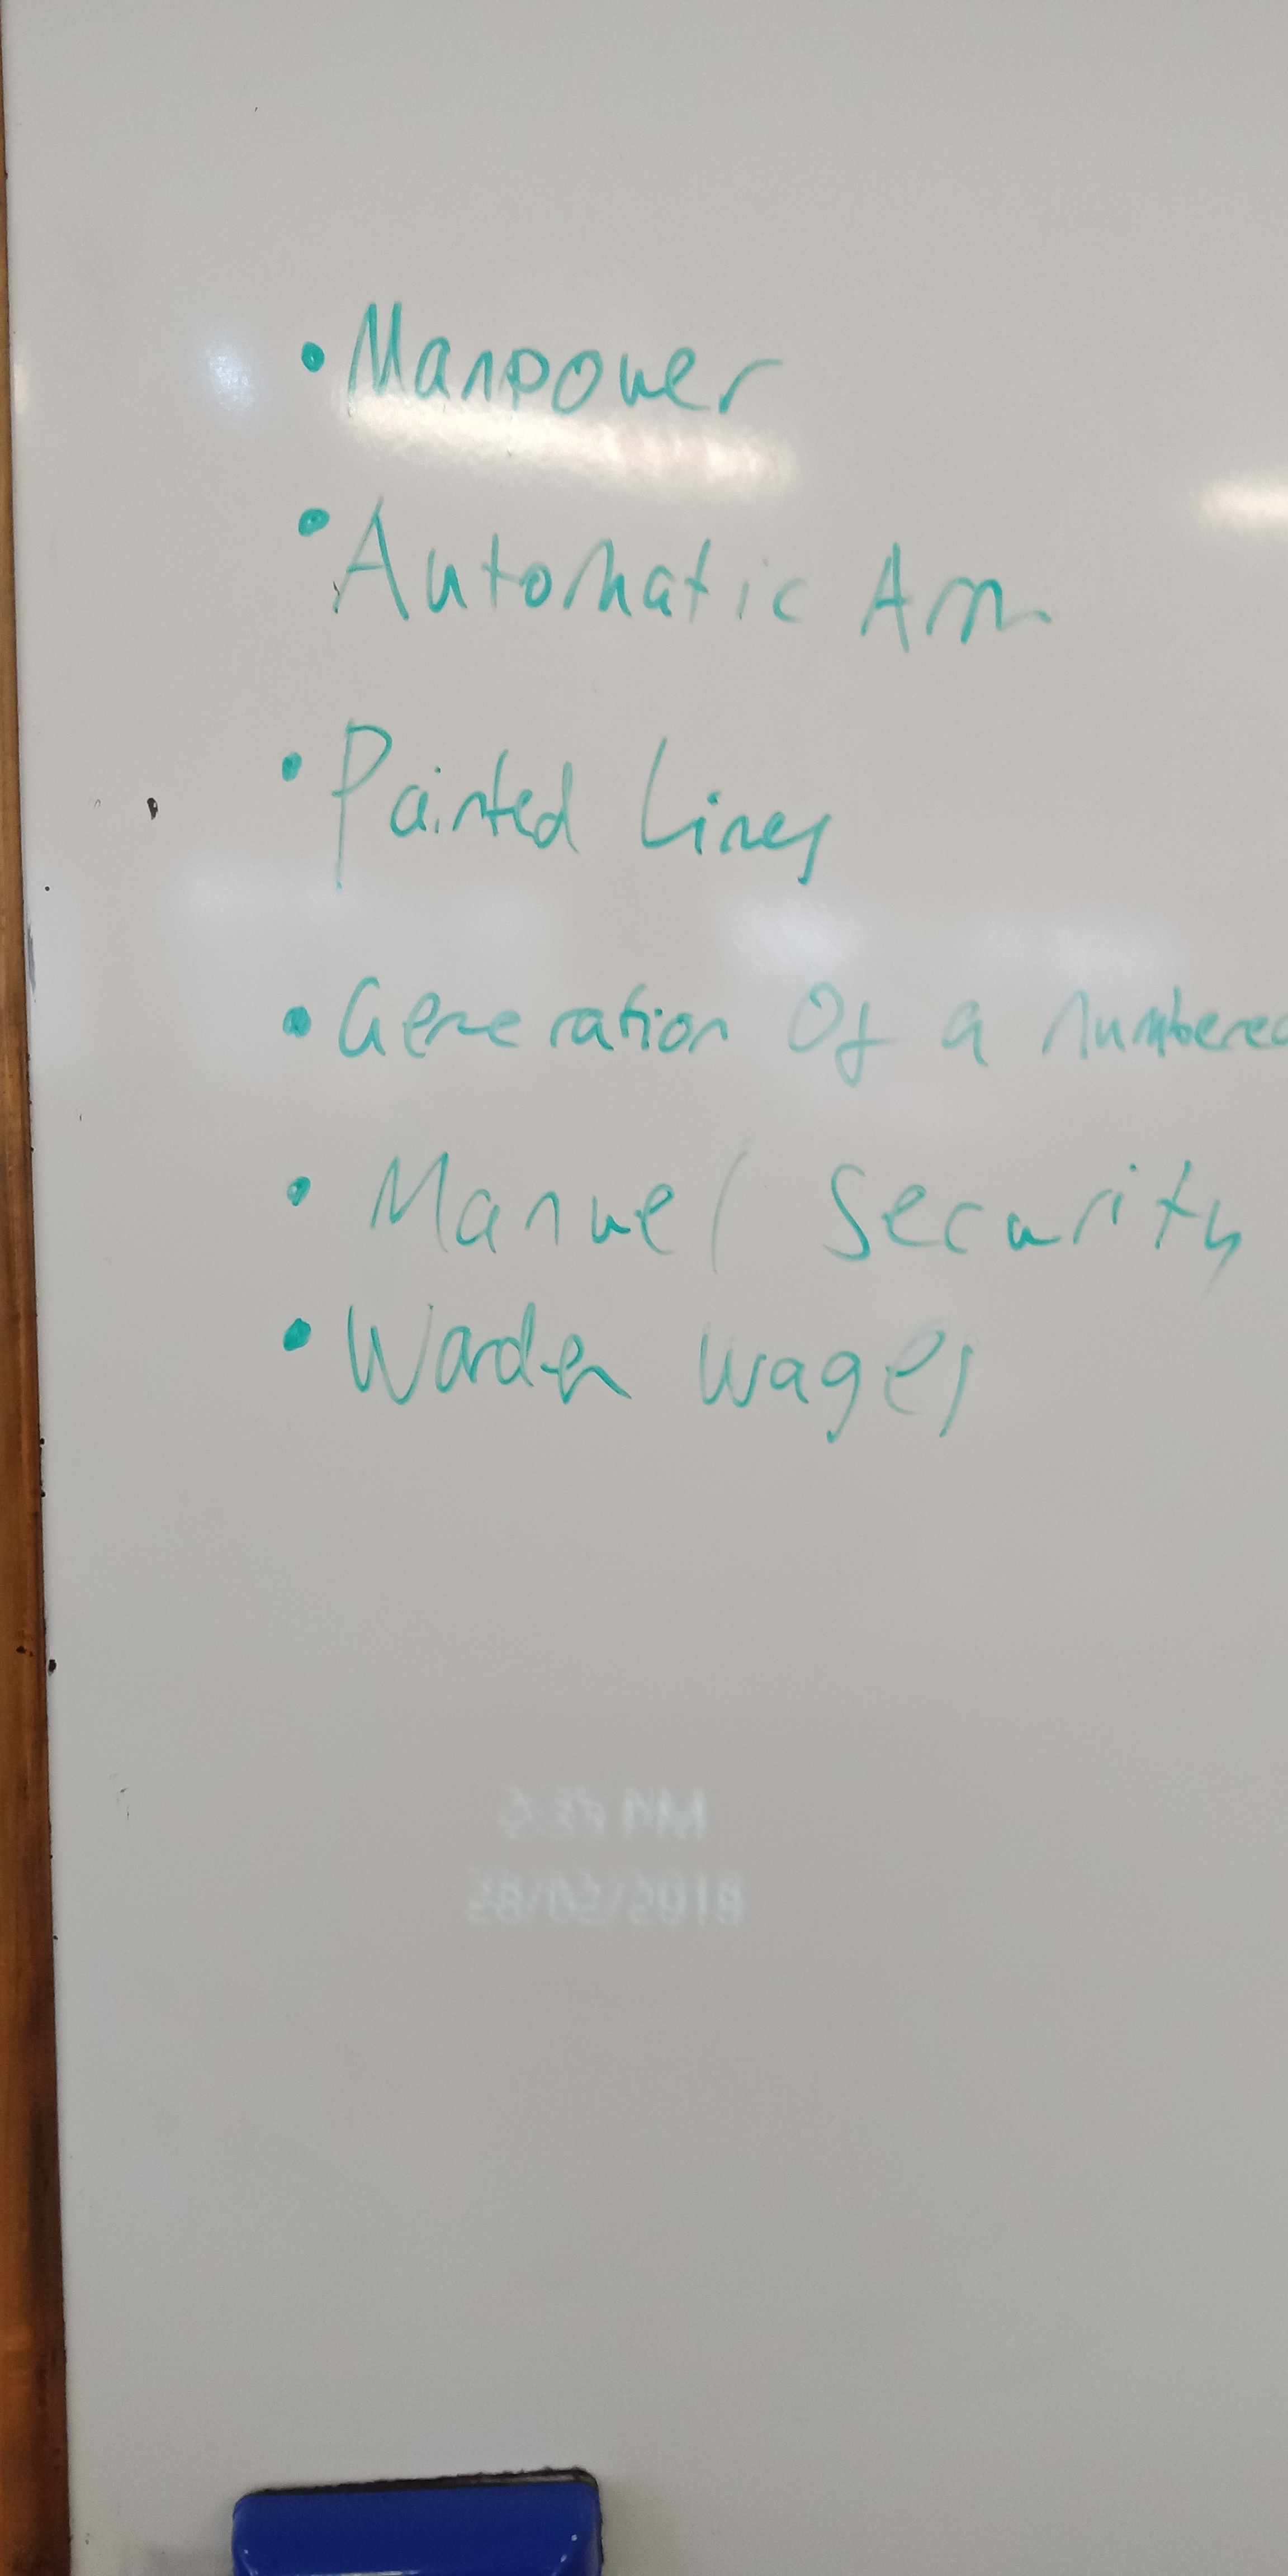 • Manpower
• Automatic Arm
• Painted Lines
• Generation Of a numbered
• Manuel Security
• Warden Wages
PM
28/02/2018